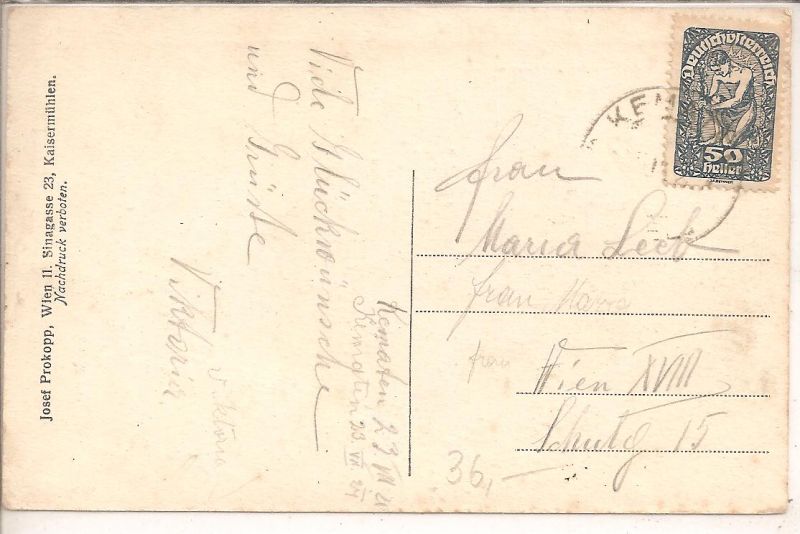 Josef Prokopp, Wien II. Sinagasse 23, Kaisermühlen.
Nachdruck verboten.
Kematen 23 VII
Kematen 23. VII 21
Viele Glückwünsche
und Grüße
Viktoria
Viktoria
Deutschösterreich
50
Heller
KEM
Frau
Maria Leeb
frau
frau
Wien XVIII
Schulg 15
36,—